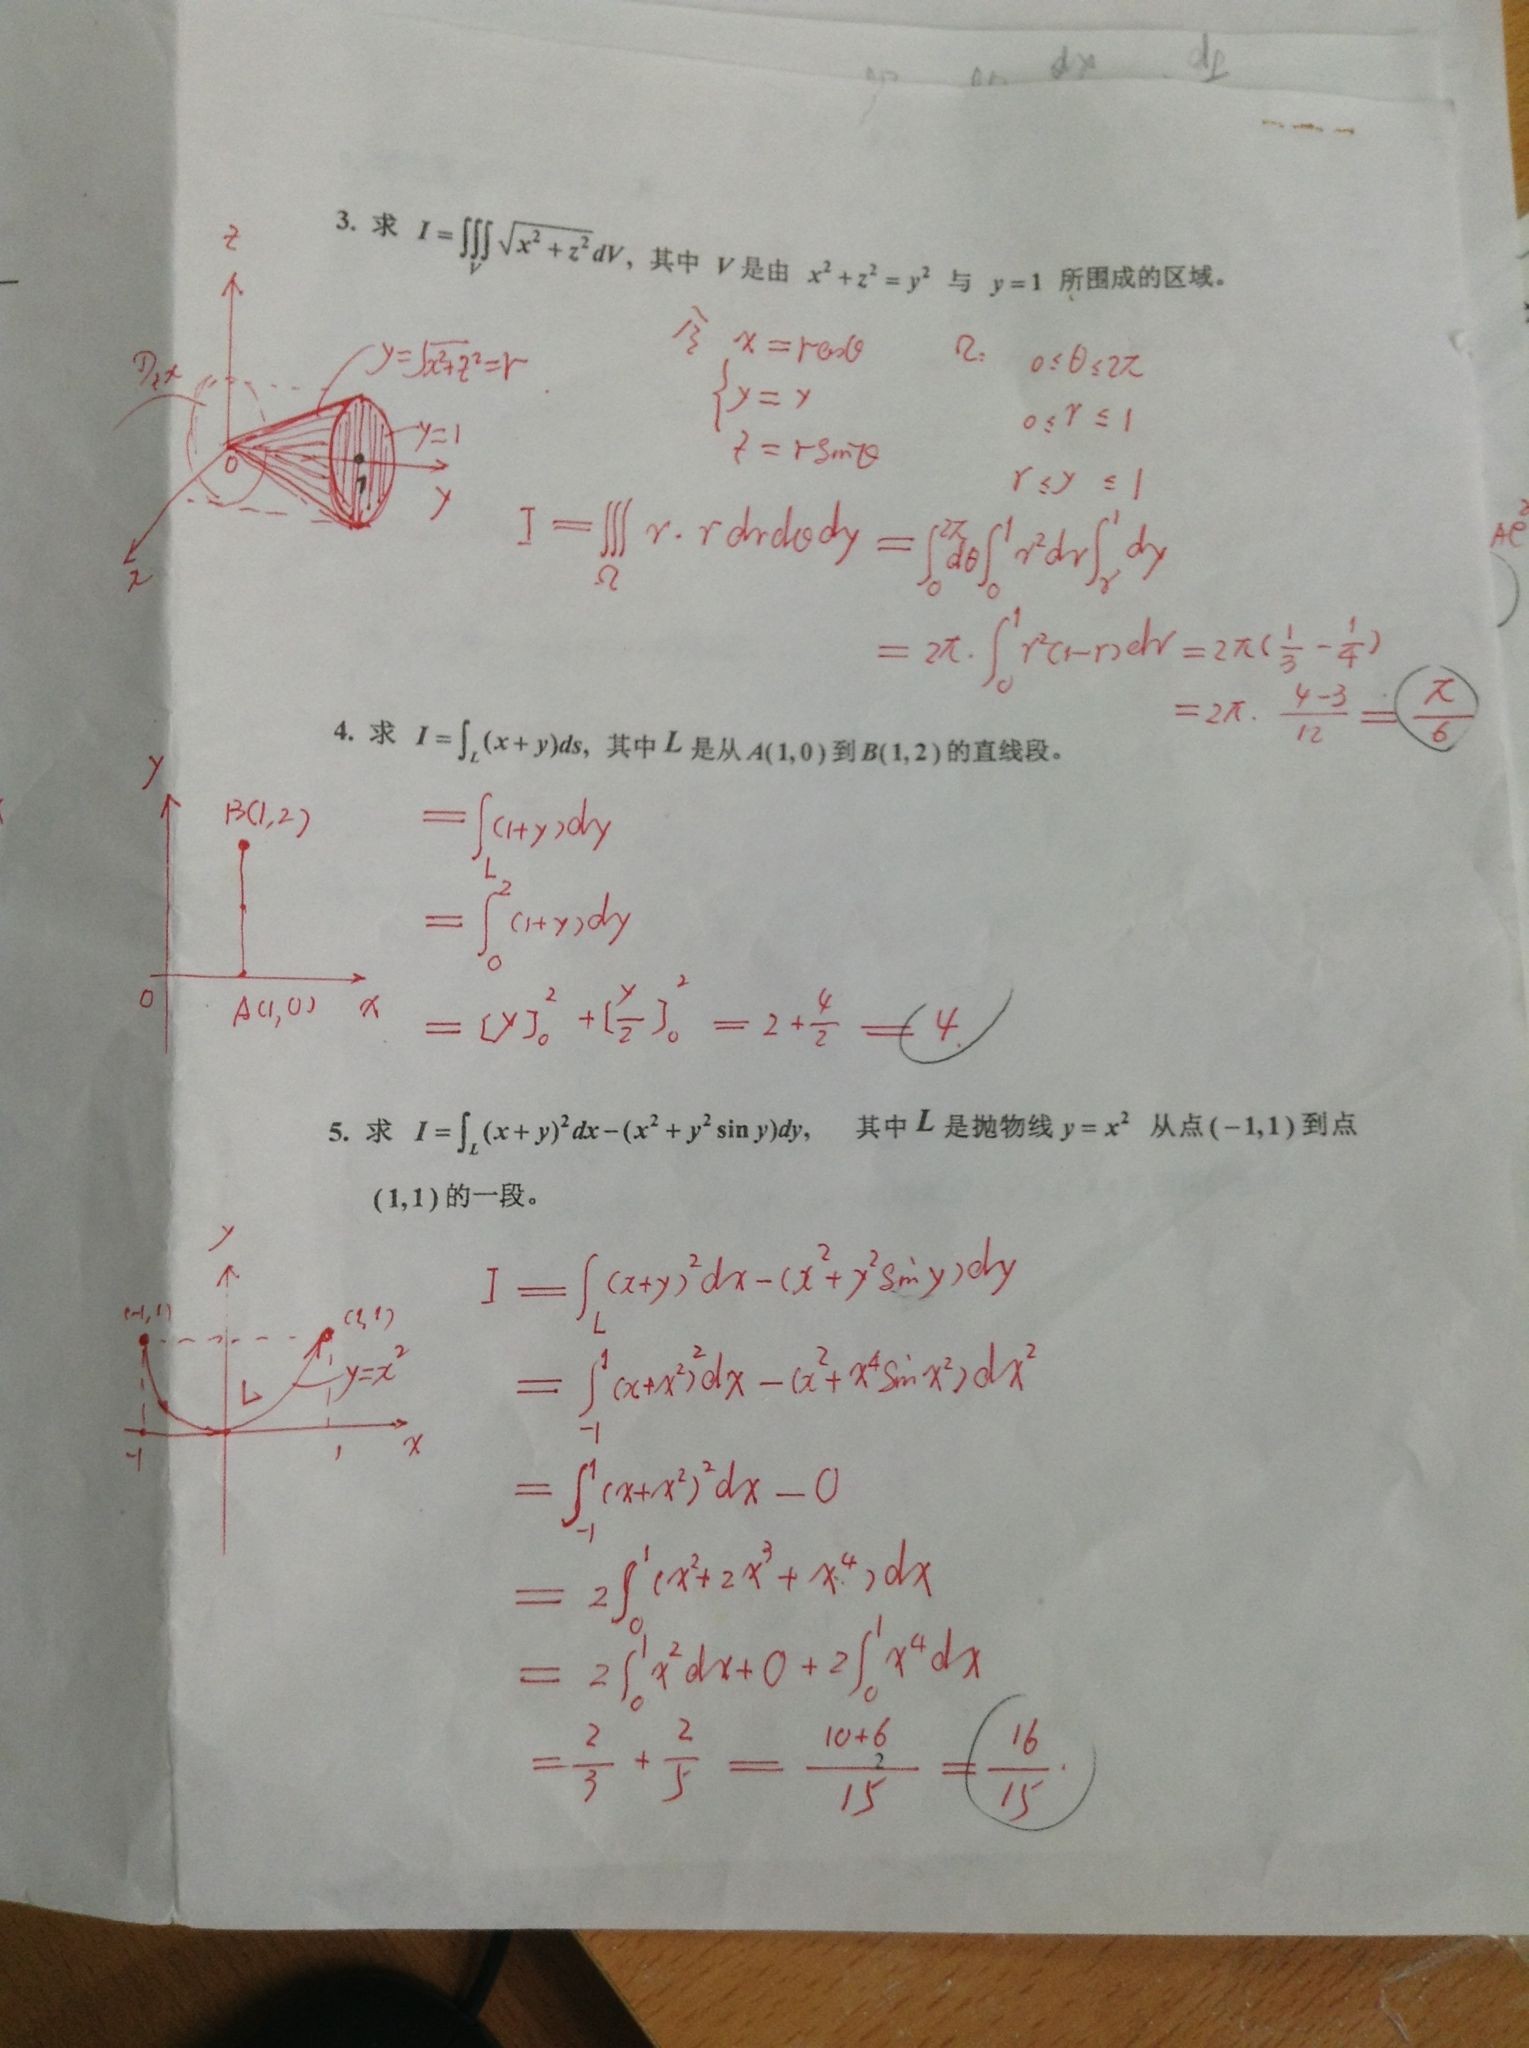 3. 求 I=∭_V √(x²+z²) dV, 其中 V 是由 x²+z²=y² 与 y=1 所围成的区域。
z
D_zx
y=√(x²+z²)=r
y=1
0
1
y
x
令 { x=rcosθ
y=y
z=rsinθ
Ω: 0≤θ≤2π
0≤r≤1
r≤y≤1
I=∭_Ω r·r dr dθ dy = ∫₀^{2π} dθ ∫₀¹ r² dr ∫_r¹ dy
= 2π·∫₀¹ r²(1-r)dr = 2π(1/3 - 1/4)
= 2π· (4-3)/12 = π/6
4. 求 I=∫_L (x+y)ds, 其中 L 是从 A(1,0) 到 B(1,2) 的直线段。
y
B(1,2)
0
A(1,0)
x
= ∫_L (1+y)dy
= ∫₀² (1+y)dy
= [y]₀² + [y/2]₀² = 2 + 4/2 = 4.
5. 求 I=∫_L (x+y)²dx-(x²+y² sin y)dy, 其中 L 是抛物线 y=x² 从点(-1,1)到点
(1,1)的一段。
y
(-1,1)
(1,1)
y=x²
L
-1
1
x
I = ∫_L (x+y)²dx-(x²+y²siny)dy
= ∫₋₁¹ (x+x²)²dx-(x²+x⁴sinx²)dx²
= ∫₋₁¹ (x+x²)²dx - 0
= 2∫₀¹ (x²+2x³+x⁴)dx
= 2∫₀¹ x²dx+0+2∫₀¹ x⁴dx
= 2/3 + 2/5 = (10+6)/15 = 16/15.